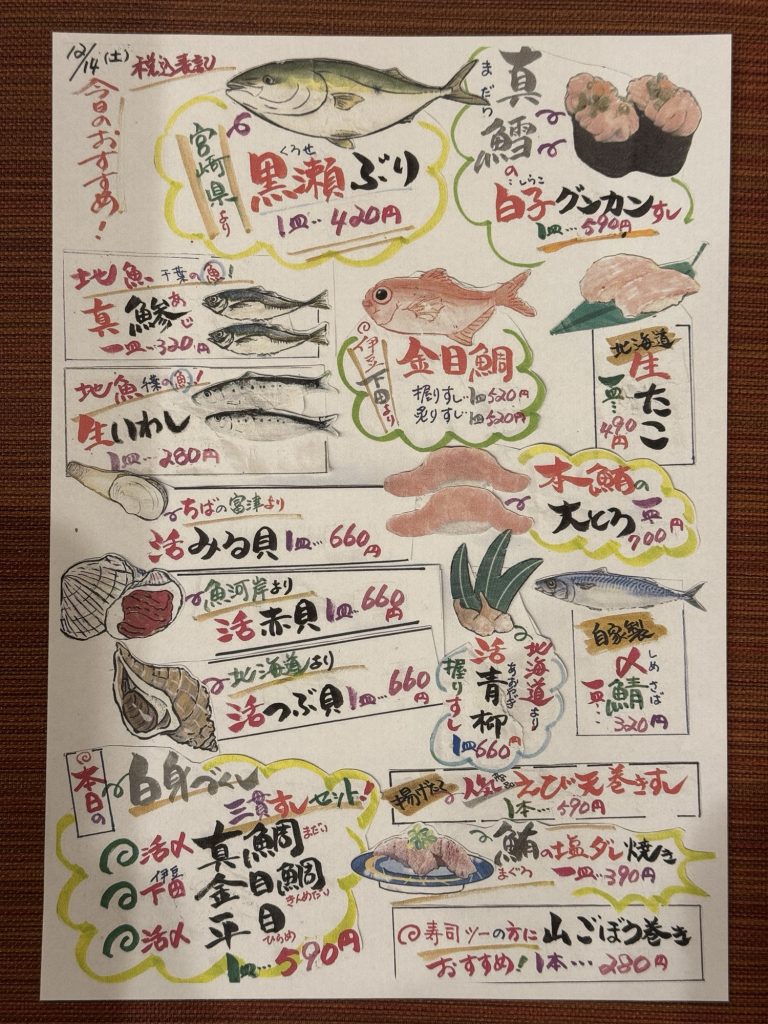 12/14(土)
税込表記
今日のおすすめ!
宮崎県より
くろせ
黒瀬ぶり
1皿…420円
まだら
真鱈の
しらこ
白子グンカンすし
1皿…590円
地魚 千葉の魚!
真鯵
あじ
一皿…320円
地魚 千葉の魚!
生いわし
1皿…280円
伊豆下田より
金目鯛
握りすし…1皿520円
炙りすし…1皿520円
北海道
生たこ
一皿…490円
ちばの富津より
活みる貝 1皿…660円
本鮪の
大とろ 一皿700円
魚河岸より
活赤貝 1皿…660円
北海道より
活つぶ貝 1皿…660円
北海道より
活青柳
あおやぎ
握りすし
1皿660円
自家製
〆鯖
しめさば
一皿…320円
本日の
白身づくし
三貫すしセット!
活〆 真鯛 まだい
伊豆下田 金目鯛 きんめだい
活〆 平目 ひらめ
1皿…590円
揚げたて
人気 えび天巻きすし
1本…590円
鮪の塩ダレ焼き
まぐろ
一皿…390円
寿司ツーの方に
おすすめ!
山ごぼう巻き
1本…280円